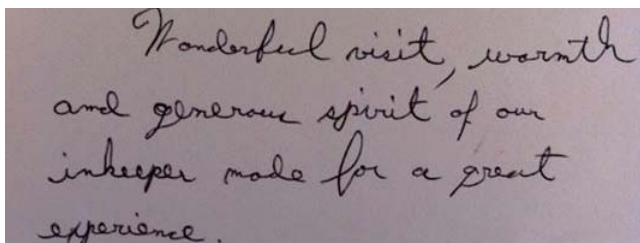 Wonderful visit, warmth
and generous spirit of our
inkeeper made for a great
experience.